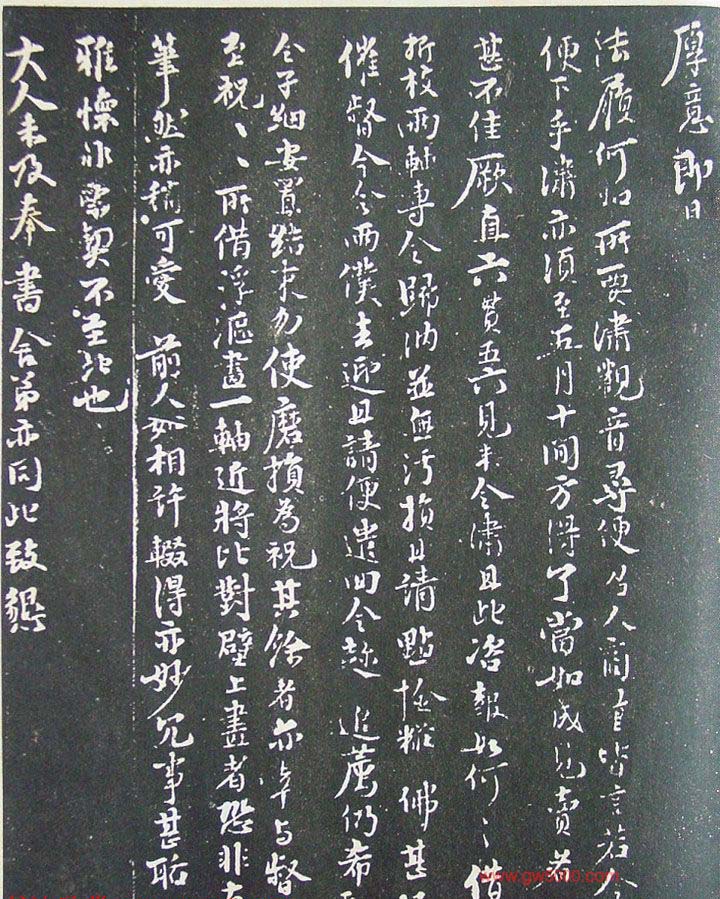 厚意即日
法履何如所要潚觀音尋便召人商量皆言若令
便下手潚亦須至五月十間方得了當如成見賣者
甚不佳厥直六貫五六見未令潚且此咨報如何〻借
折枝兩軸專令歸納並無污損且請點檢 佛甚
催督今令兩僕去迎且請便遣回今 追薦仍希
令子細安置 勿使磨損為祝其餘者亦 与督
至祝〻〻所借浮漚畫一軸近將比對壁上畫者恐非
筆然亦稍可愛 前人如相許輟得亦妙 事甚
雅懷非 契不至此也
大人未及奉書舍弟亦同此致懇
www.gw5000.com